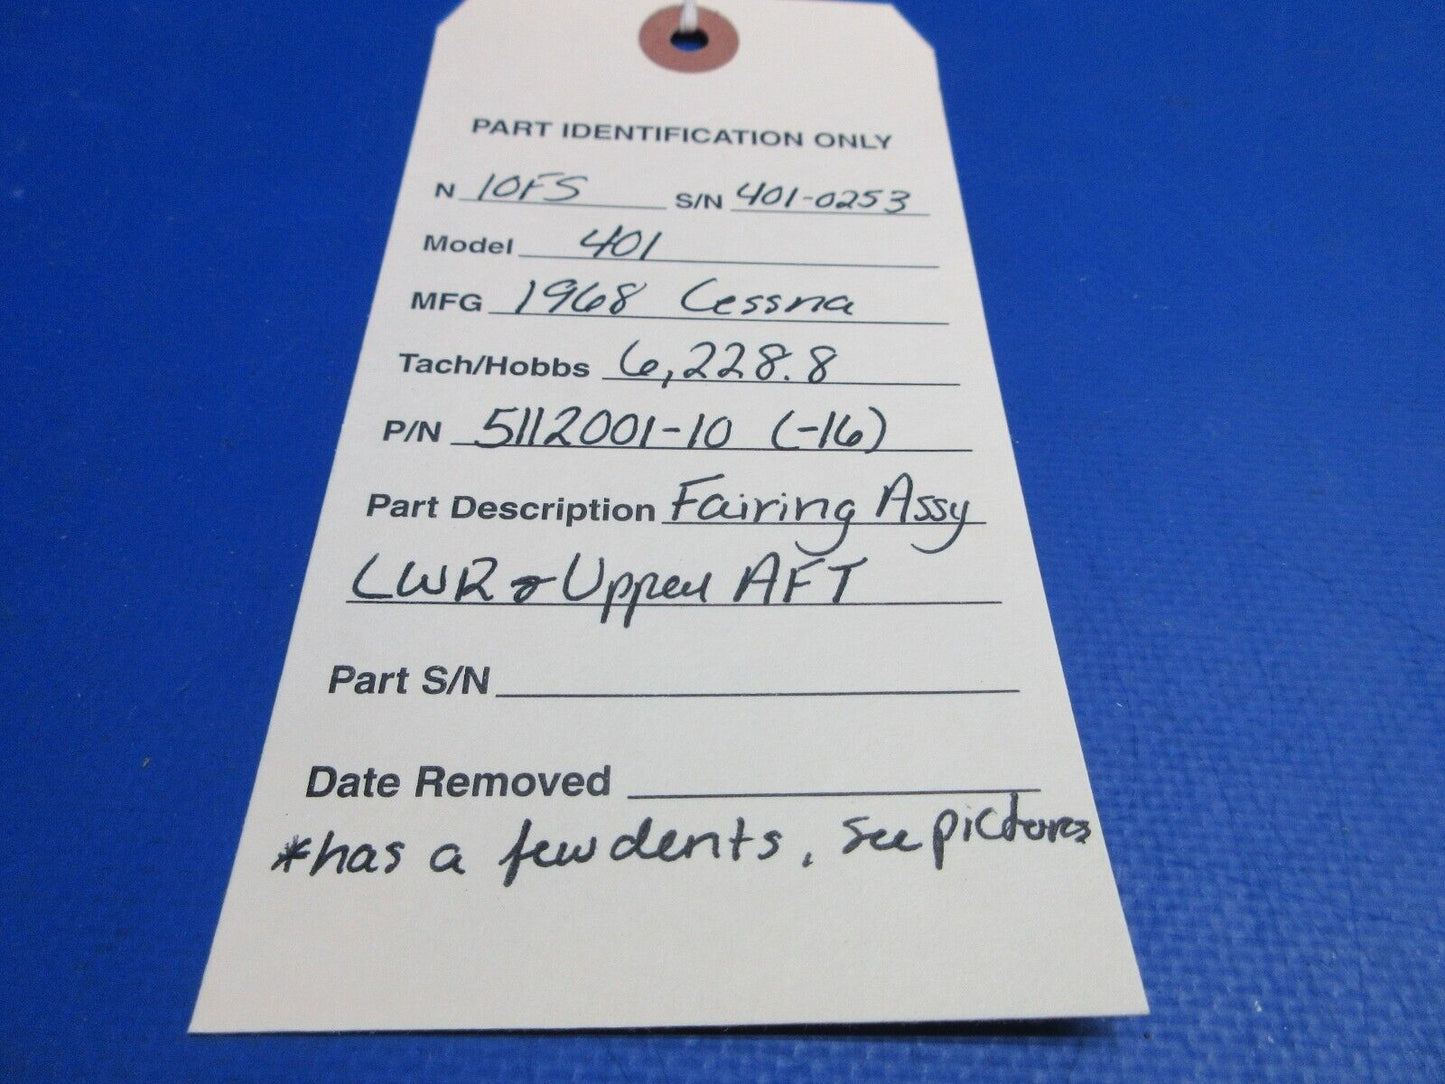 PART IDENTIFICATION ONLY
N 10FS S/N 401-0253
Model 401
MFG 1968 Cessna
Tach/Hobbs 6,228.8
P/N 5112001-10 (-16)
Part Description Fairing Assy
LWR & Upper AFT
Part S/N
Date Removed
*has a few dents, see pictures